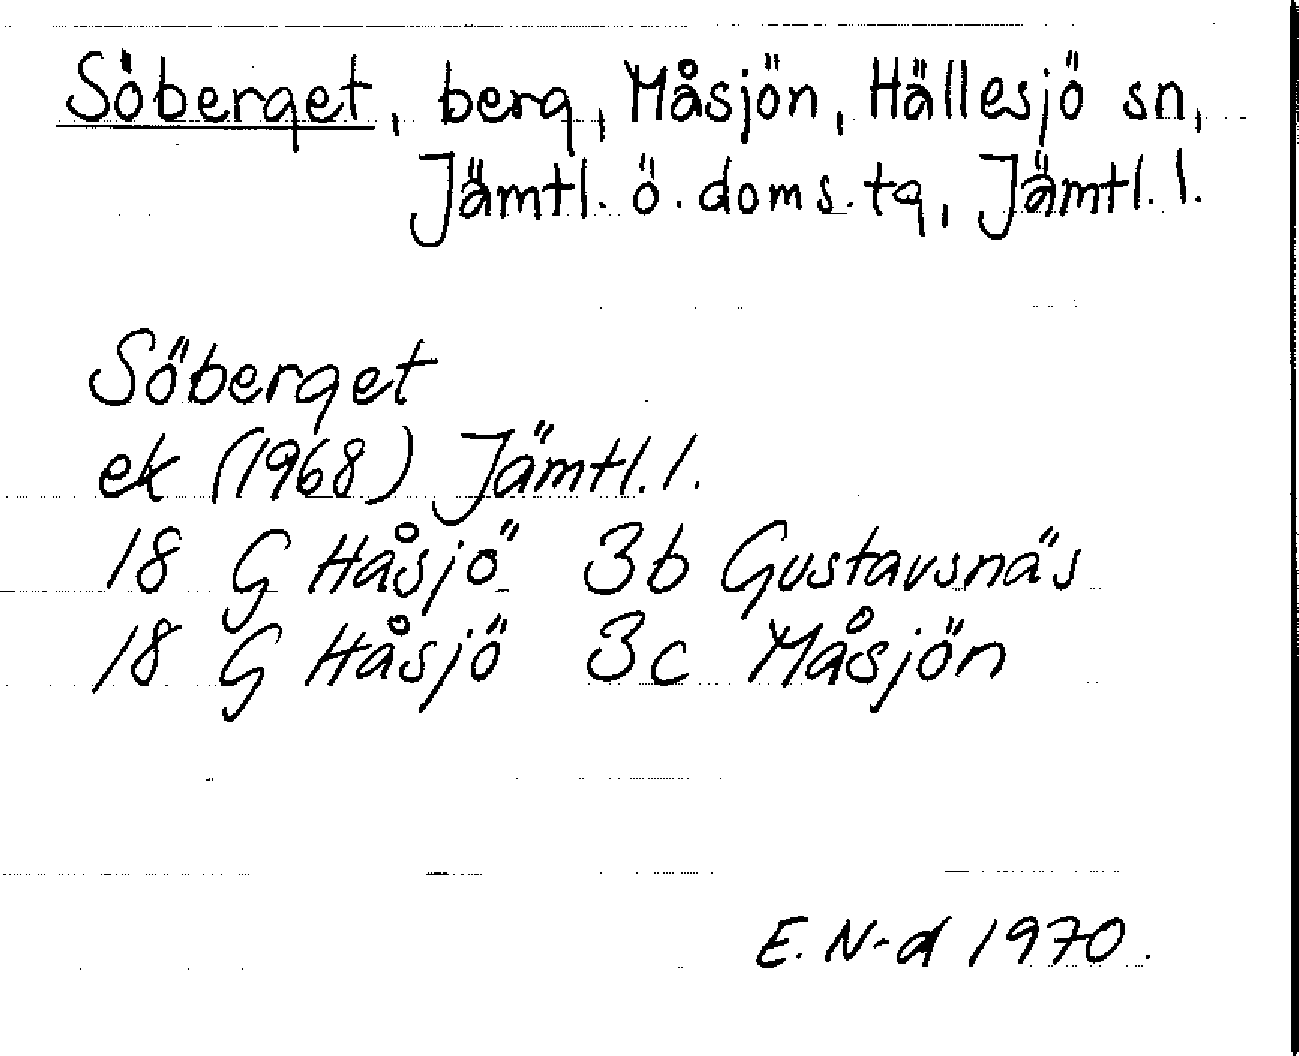 Söberget, berg, Måsjön, Hällesjö sn,
Jämtl. ö. doms. tg, Jämtl. l.
Söberget
ek (1968) Jämtl. l.
18 G Håsjö 3b Gustavsnäs
18 G Håsjö 3c Måsjön
E. N-d 1970.